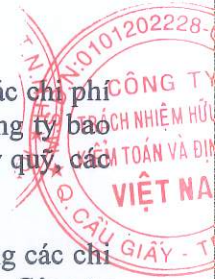 ác chi phí
ng ty bao
quỹ, các
ng các chi
N:0101202228-
CÔNG TY
TRÁCH NHIỆM HỮU
KIỂM TOÁN VÀ ĐỊN
VIỆT NA
Q. CẦU GIẤY - T